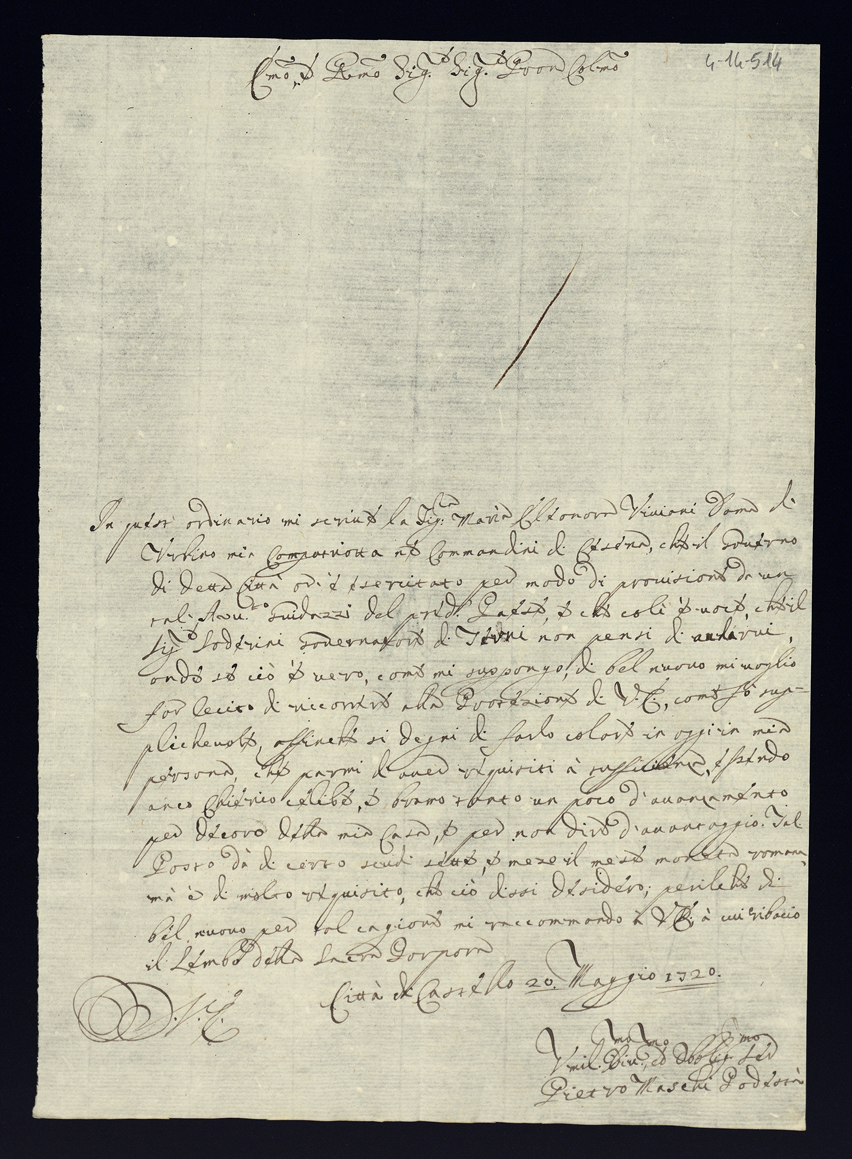 4-14-514
Emo, e Rmo Sig.re Sig.re Pron Colmo
In questo ordinario mi scrive la Sig.ra Maria Elleonora Viviani Dama di
Urbino mia Compatriotta ne Commandini di Cesena, che il Governo
di detta Città or è esercitato per modo di provisione da un
tal Guidazzi del Paese, e che colì è voce, che il
Sig.re Soderini Governatore di Terni non pensi di andarvi,
onde se ciò è vero, come mi suppongo, di bel nuovo mi voglio
far lecito di ricorrere alla Protezione di V.E., come fò sup-
plichevole, affinche si degni di farlo colare in oggi in mia
persona, che parmi d'aver requisiti à sufficienza, essendo
anco Chierico celibe, e bramo tanto un poco d'avanzamento
per decoro della mia Casa, e per non dire d'avantaggio. Tal
Posto dà di certo scudi sette, e meze il mese moneta romana
mà è di molto requisito, che ciò dissi desidero; perilche di
bel nuovo per tal cagione mi raccommando à V.E., à cui ribacio
il Lembo della Sacra Porpora
Città di Castello 20. Maggio 1720.
D. V. E.
Umil.mo Div.mo, ed Obblig.mo Ser
Pietro Maschi Podestà